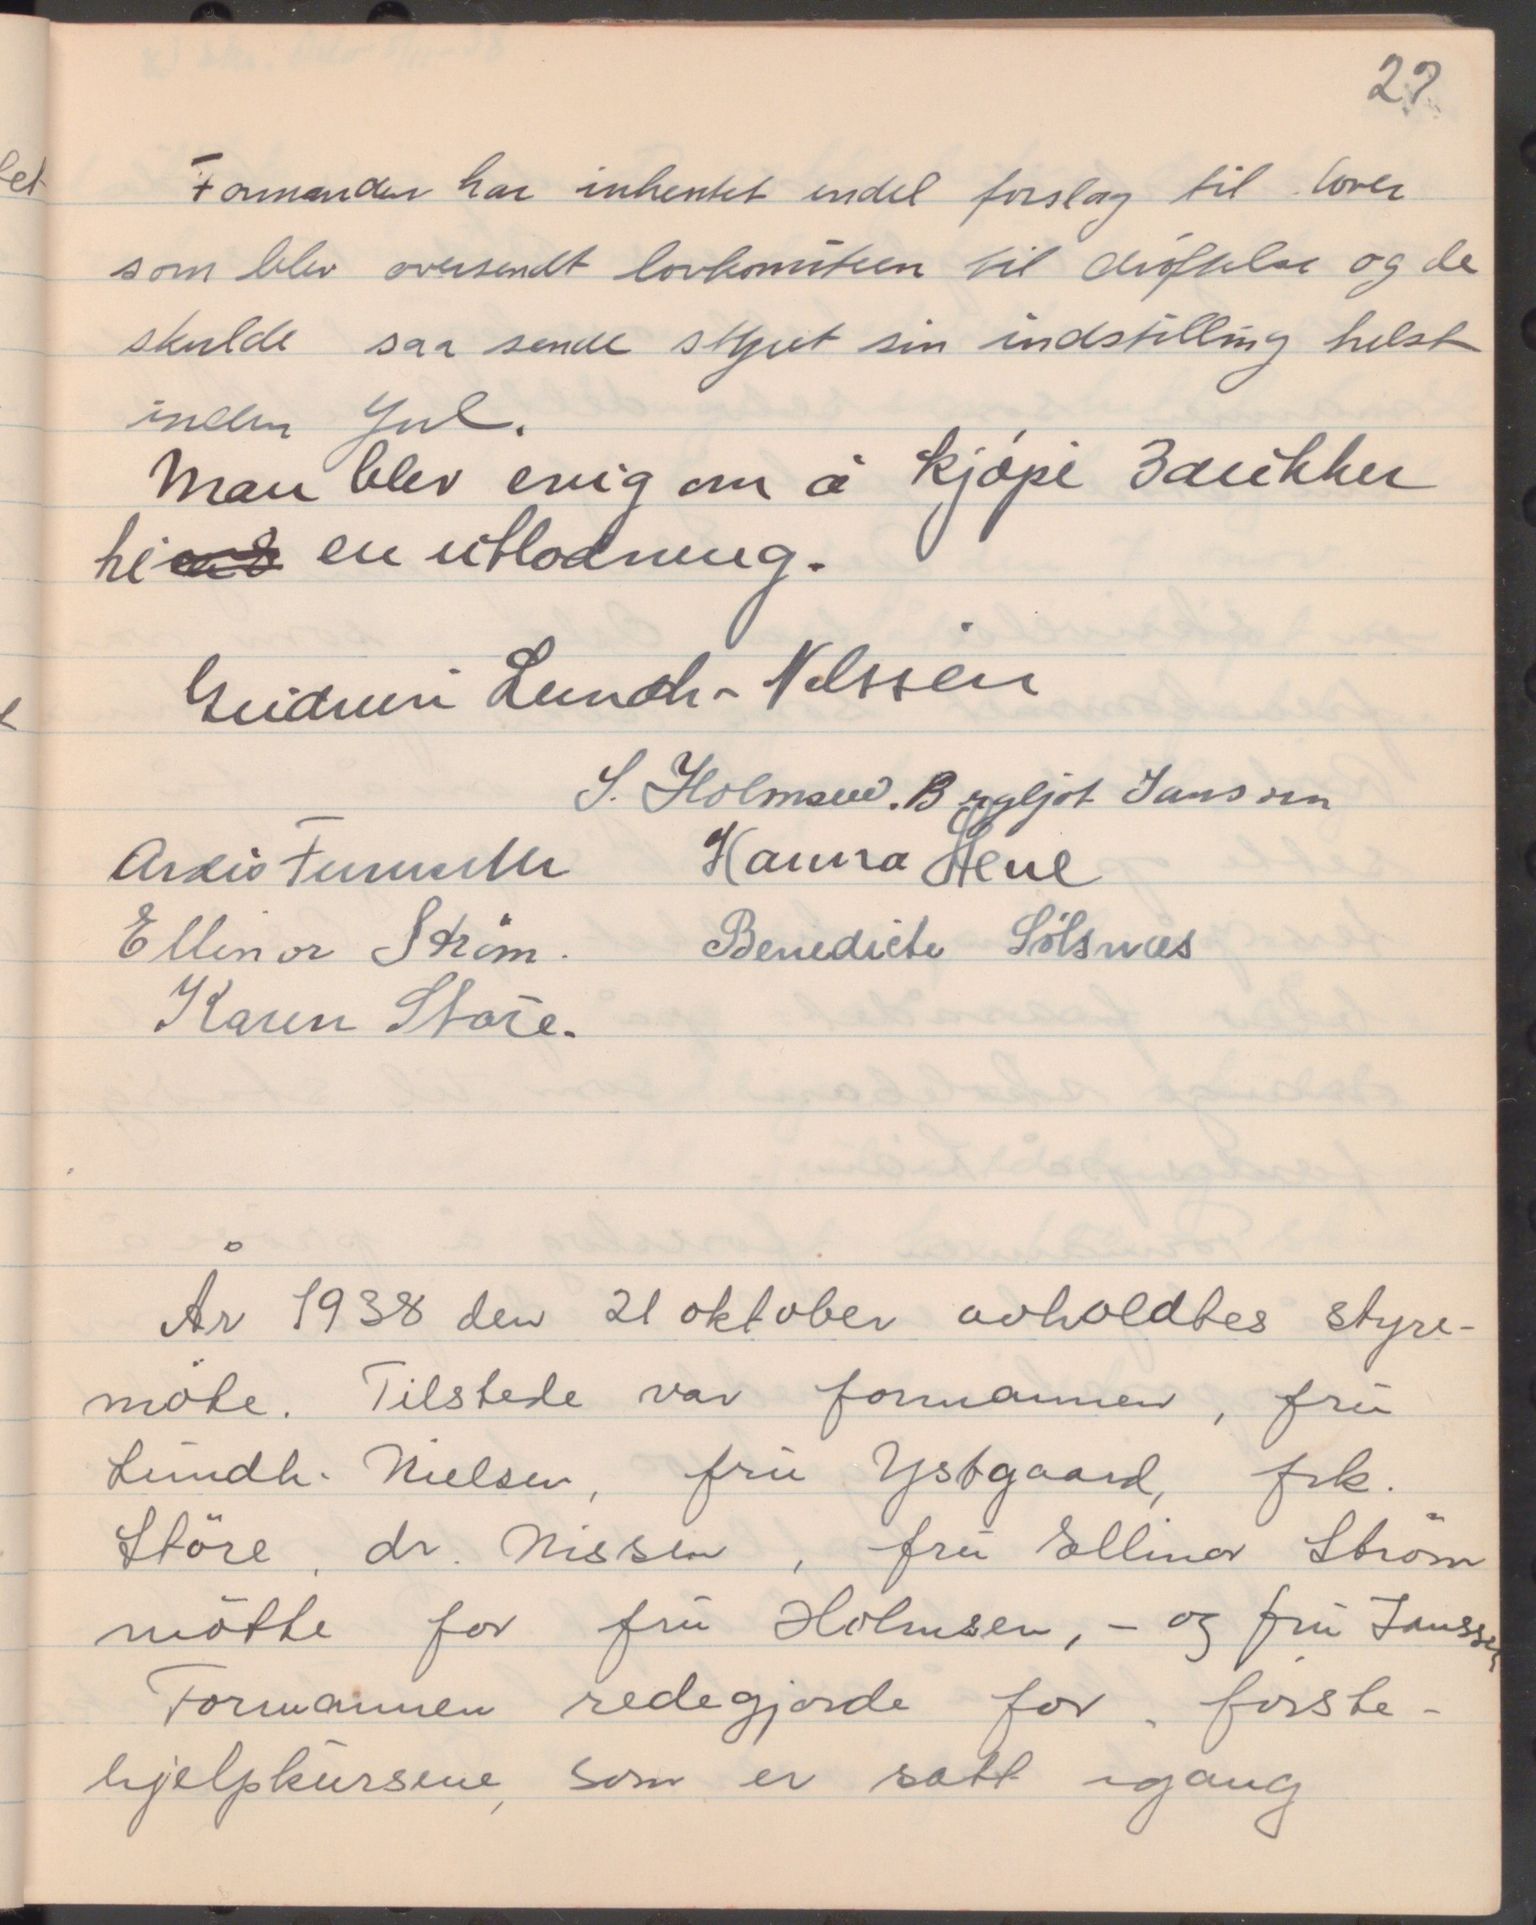 27
Formanden har inhentet endel forslag til lover
som blev oversendt lovkomiteen til drøftelse og de
skulde saa sende styret sin indstilling helst
inden Jul.
Man blev enig om å kjøpe 3 dukker
til en utlodning.
Gudrun Lundh-Nilssen
S. Holmsen. Bergljot Janson
Hanna
Ellinor Ström. Benedicte Sølsnæs
Karen Støre.
År 1938 den 21 oktober avholdtes styre-
möte. Tilstede var formannen, frü
Lündh-Nielsen, frü Ystgaard, frk.
Störe, dr. Nissen, frü Ellinor Ström
mötte for frü Holmsen, - og frü Janssen
Formannen redegjorde for förste-
hjelpkürsene, som er satt igang